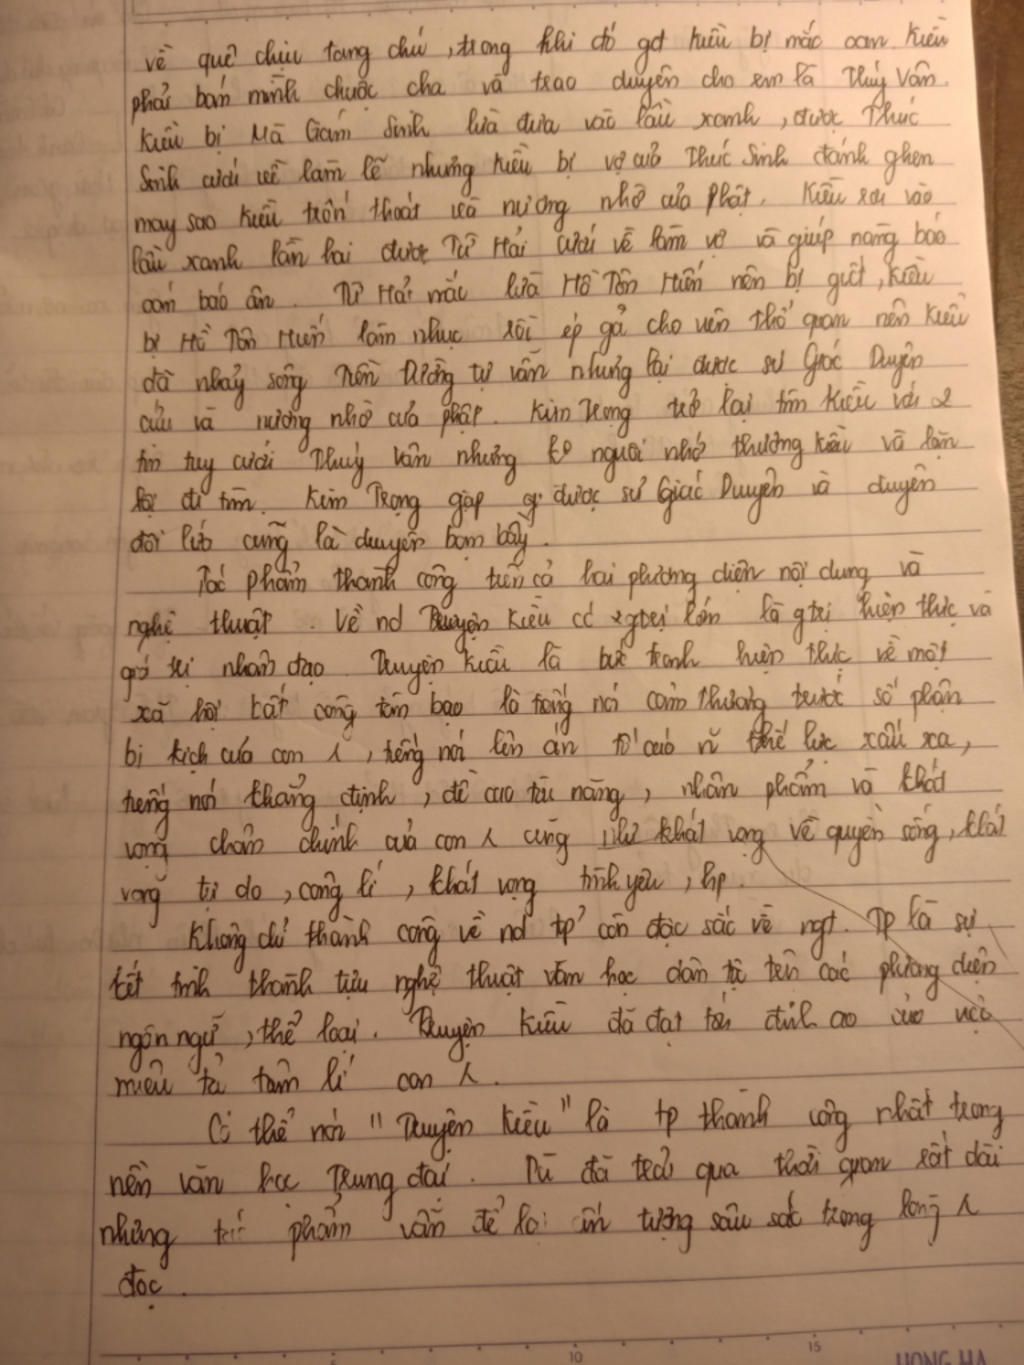 về quê chịu tang chú, trong khi đó gđ Kiều bị mắc oan. Kiều
phải bán mình chuộc cha và trao duyên cho em là Thúy Vân.
Kiều bị Mã Giám Sinh lừa đưa vào lầu xanh, được Thúc
Sinh cưới về làm lẽ nhưng Kiều bị vợ của Thúc Sinh đánh ghen
may sao Kiều trốn thoát và nương nhờ cửa Phật. Kiều rơi vào
lầu xanh lần hai được Từ Hải cưới về làm vợ và giúp nàng báo
oán báo ân. Từ Hải mắc lừa Hồ Tôn Hiến nên bị giết, Kiều
bị Hồ Tôn Hiến làm nhục rồi ép gả cho viên thổ quan nên Kiều
đã nhảy sông Tiền Đường tự vẫn nhưng lại được sư Giác Duyên
cứu và nương nhờ cửa phật. Kim Trọng trở lại tìm Kiều với 2
tin tuy cưới Thúy Vân nhưng ko nguôi nhớ thương Kiều và lặn
lội đi tìm. Kim Trọng gặp được sư Giác Duyên và duyên
đôi lứa cũng là duyên bạn bầy.
Tác phẩm thành công trên cả hai phương diện nội dung và
nghệ thuật. Về nd Truyện Kiều có 2 gtrị lớn là gtrị hiện thực và
giá trị nhân đạo. Truyện Kiều là bức tranh hiện thực về một
xã hội bất công tàn bạo là tiếng nói cảm thương trước số phận
bi kịch của con ng, tiếng nói lên án tố cáo n~ thế lực xấu xa,
tiếng nói khẳng định, đề cao tài năng, nhân phẩm và khát
vọng chân chính của con ng cũng như khát vọng về quyền sống, khát
vọng tự do, công lí, khát vọng tình yêu, hp.
Không chỉ thành công về nd tp còn đặc sắc về ngt. Tp là sự
kết tinh thành tựu nghệ thuật văn học dân tộc trên các phương diện
ngôn ngữ, thể loại. Truyện Kiều đã đạt tới đỉnh cao của việc
miêu tả tâm lí con ng.
Có thể nói "Truyện Kiều" là tp thành công nhất trong
nền văn học Trung đại. Dù đã trải qua thời gian rất dài
nhưng tác phẩm vẫn để lại ấn tượng sâu sắc trong lòng ng
đọc.
10
15
HONG HA